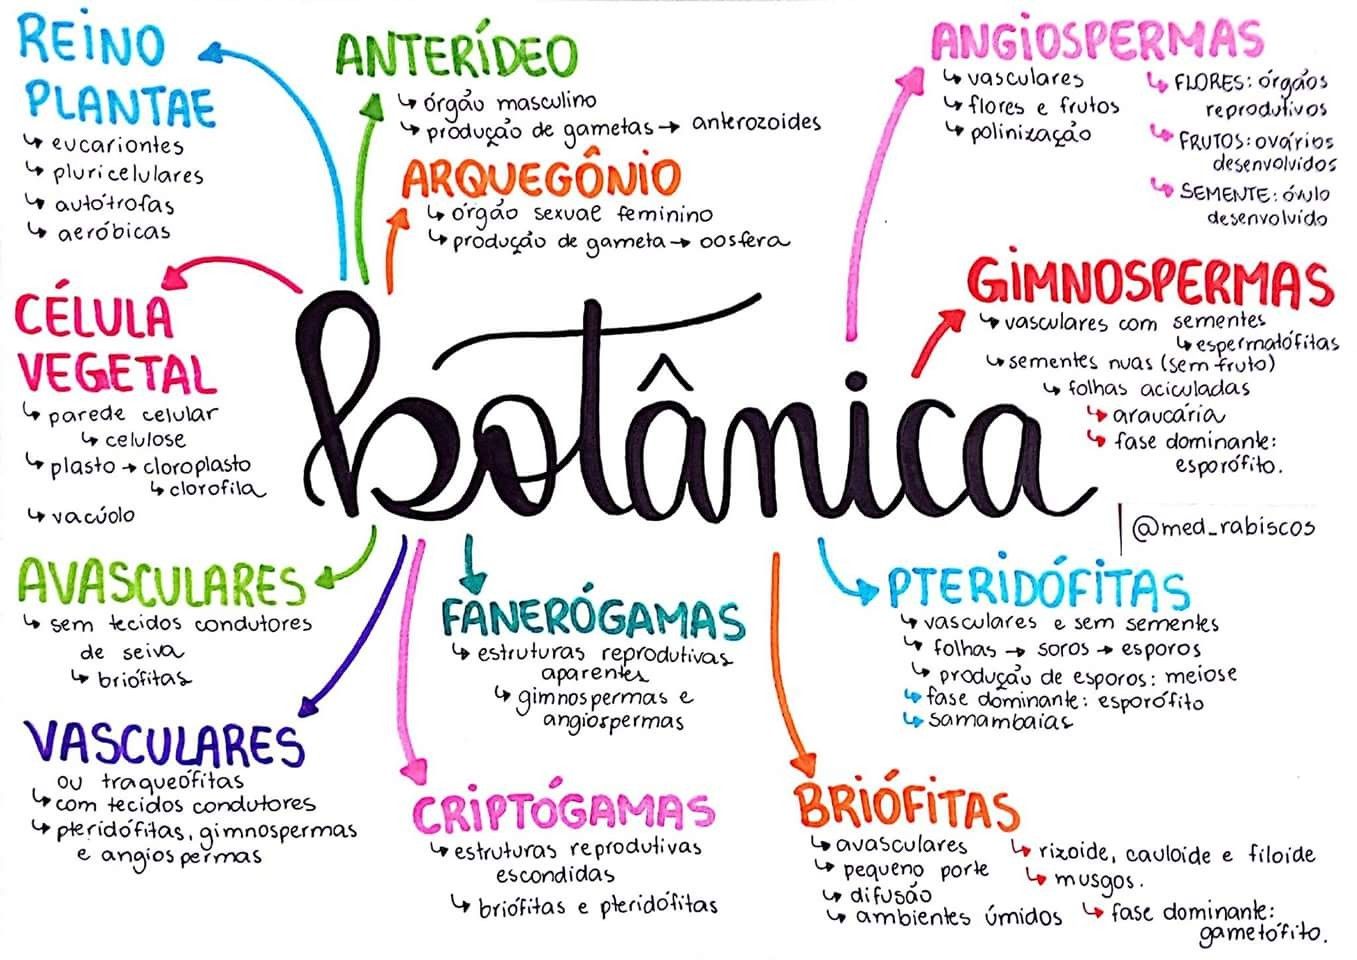 REINO
PLANTAE
↳ eucariontes
↳ pluricelulares
↳ autótrofas
↳ aeróbicas
ANTERÍDEO
↳ órgão masculino
↳ produção de gametas → anterozoides
ARQUEGÔNIO
↳ órgão sexual feminino
↳ produção de gameta → oosfera
ANGIOSPERMAS
↳ vasculares
↳ flores e frutos
↳ polinização
↳ FLORES: órgãos
reprodutivos
↳ FRUTOS: ovários
desenvolvidos
↳ SEMENTE: óvulo
desenvolvido
GIMNOSPERMAS
↳ vasculares com sementes
↳ espermatófitas
↳ sementes nuas (sem fruto)
↳ folhas aciculadas
↳ araucária
↳ fase dominante:
esporófito.
CÉLULA
VEGETAL
↳ parede celular
↳ celulose
↳ plasto → cloroplasto
↳ clorofila
↳ vacúolo
botânica
@med_rabiscos
AVASCULARES
↳ sem tecidos condutores
de seiva
↳ briófitas
VASCULARES
ou traqueófitas
↳ com tecidos condutores
↳ pteridófitas, gimnospermas
e angiospermas
FANERÓGAMAS
↳ estruturas reprodutivas
aparentes
↳ gimnospermas e
angiospermas
CRIPTÓGAMAS
↳ estruturas reprodutivas
escondidas
↳ briófitas e pteridófitas
PTERIDÓFITAS
↳ vasculares e sem sementes
↳ folhas → soros → esporos
↳ produção de esporos: meiose
↳ fase dominante: esporófito
↳ samambaias
BRIÓFITAS
↳ avasculares
↳ pequeno porte
↳ difusão
↳ ambientes úmidos
↳ rizoide, cauloide e filoide
↳ musgos.
↳ fase dominante:
gametófito.